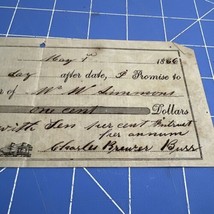 May 1st 1866
day after date, I Promise to
r of Mr W Simmons
one cent Dollars
with Ten per cent Interest
per annum
Charles Brewer Burr